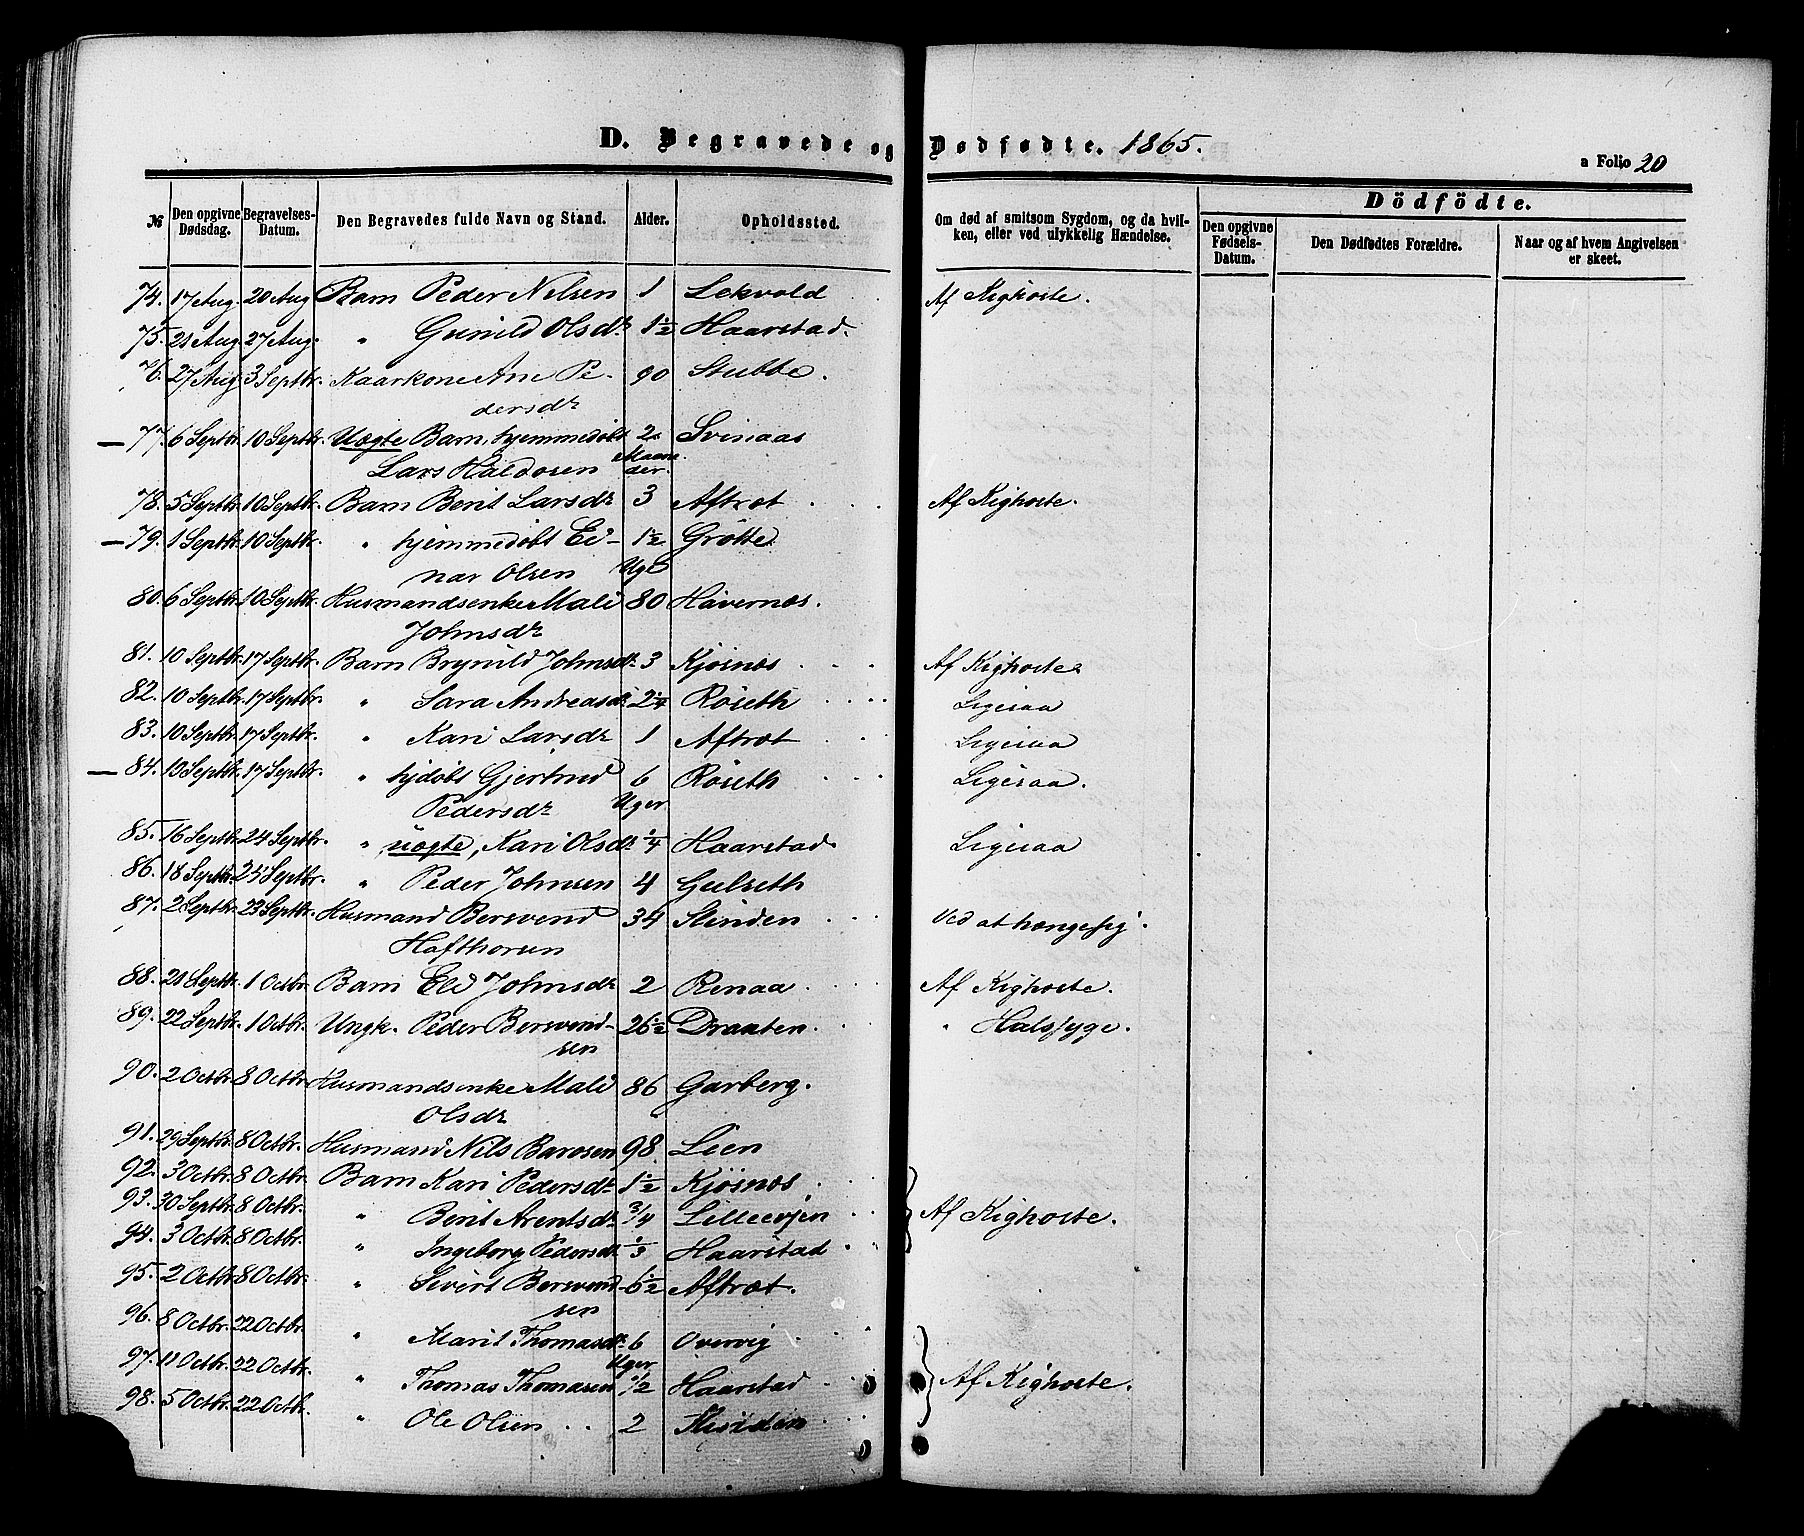 D. Begravede og Dødfødte. 1865.
a Folio 20
Dödfödte.
№ Den opgivne Dødsdag. Begravelses-Datum. Den Begravedes fulde Navn og Stand. Alder. Opholdssted. Om død af smitsom Sygdom, og da hvilken, eller ved ulykkelig Hændelse. Den opgivne Fødsels-Datum. Den Dødfødtes Forældre. Naar og af hvem Angivelsen er skeet.
74. 17 Aug. 20 Aug Barn Peder Nilsen 1 Lekvold Af Kighoste.
75. 21 Aug. 27 Aug. " Gunild Olsdr 1½ Haarstad.
76. 27 Aug 3 Septbr. Kaarkone Ane Pe- 90 Stubbe.
dersdr
77. 6 Septbr. 10 Septbr. Uægte Barn, hjemmedøbt 2 Svinaas
Lars Haldosen Maaneder.
78. 5 Septbr. 10 Septbr. Barn Berit Larsdr 3 Aftræt Af Kighoste.
79. 1 Septbr. 10 Septbr. " hjemmedøbt Ei- 1½ Grøtte
nar Olsen Uge
80. 6 Septbr. 10 Septbr. Husmandsenke Mali 80 Havernæs.
Johnsdr
81. 10 Septbr. 17 Septbr. Barn Brynild Johnsdr 3 Kjøsnæs Af Kighoste
82. 10 Septbr. 17 Septbr. " Sara Andreasdr 2¼ Røseth Ligesaa
83. 10 Septbr. 17 Septbr. " Kari Larsdr 1 Aftræt Ligesaa
84. 13 Septbr. 17 Septbr. " hjdøbt Gjertrud 6 Røseth Ligesaa.
Pedersdr Uger
85. 16 Septbr. 24 Septbr. " uægte, Kari Olsdr ¼ Haarstad. Ligesaa
86. 18 Septbr. 25 Septbr. " Peder Johnsen 4 Gulseth
87. 2 Septbr. 23 Septbr. Husmand Bersvend 34 Slinden Ved at hænge sig.
Hafthorsen
88. 21 Septbr. 1 Octbr. Barn Eli Johnsdr 2 Renaa Af Kighoste.
89. 22 Septbr. 1 Octbr. Ungk. Peder Bersvend- 26½ Draxten " Halssyge.
sen
90. 2 Octbr. 8 Octbr Husmandsenke Mali 86 Garberg.
Olsdr
91. 29 Septbr. 8 Octbr. Husmand Nils Barosen 98. Lien
92. 3 Octbr. 8 Octbr. Barn Kari Pedersdr 1½ Kjøsnæs
93. 30 Septbr. 8 Octbr. " Berit Arentsdr ¾ Lilleevjen Af Kighoste.
94. 3 Octbr. 8 Octbr. " Ingeborg Pedersdr ⅓ Haarstad
95. 2 Octbr. 8 Octbr. " Sivert Bersvend- 6½ Aftræt.
sen
96. 8 Octbr. 22 Octbr. " Marit Thomasdr 6 Overvig
Uger
97. 11 Octbr. 22 Octbr. " Thomas Thomasen ½ Haarstad Af Kighoste.
98. 5 Octbr. 22 Octbr. " Ole Olsen 2